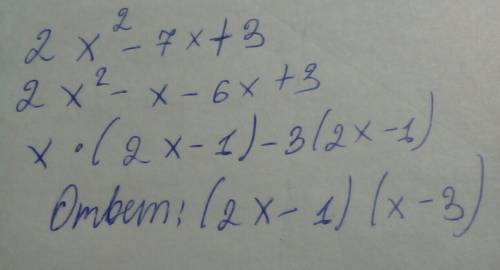 2x² - 7x + 3
2x² - x - 6x + 3
x · (2x - 1) - 3(2x - 1)
Ответ: (2x - 1) (x - 3)